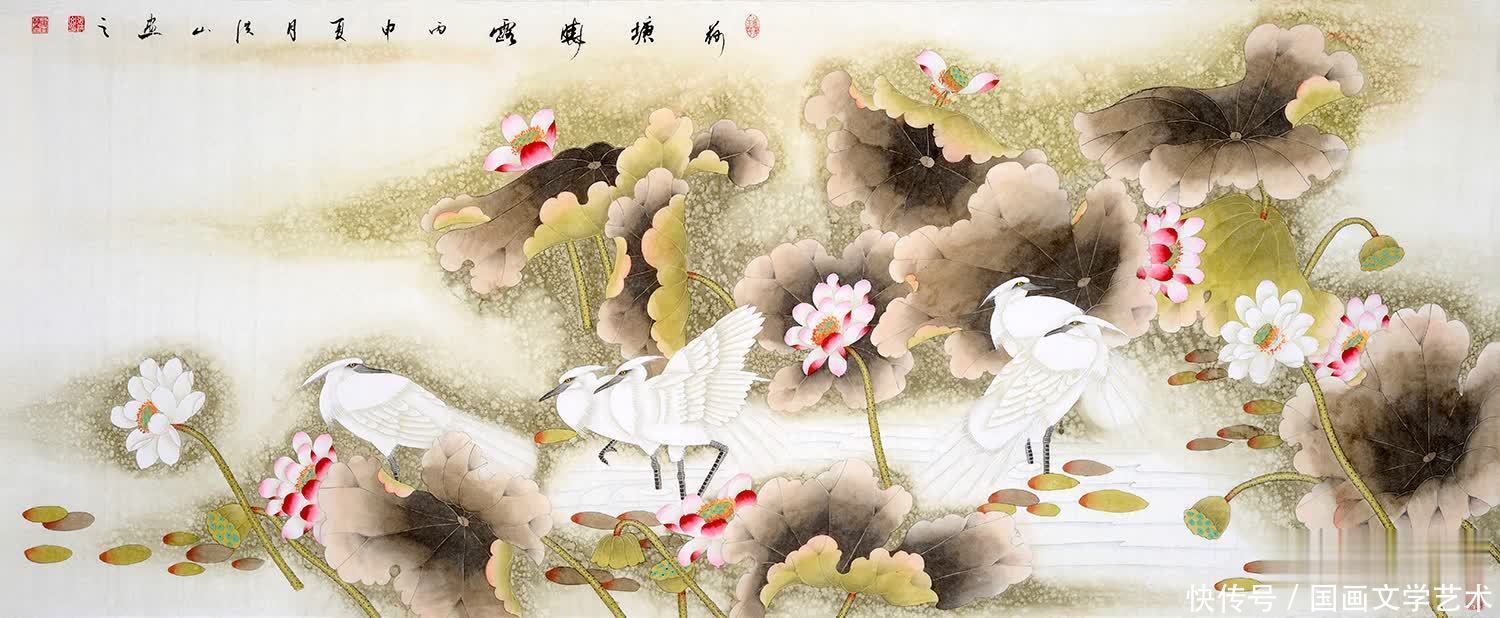 荷塘曉露 丙申夏月洪山畫之
快传号 / 国画文学艺术